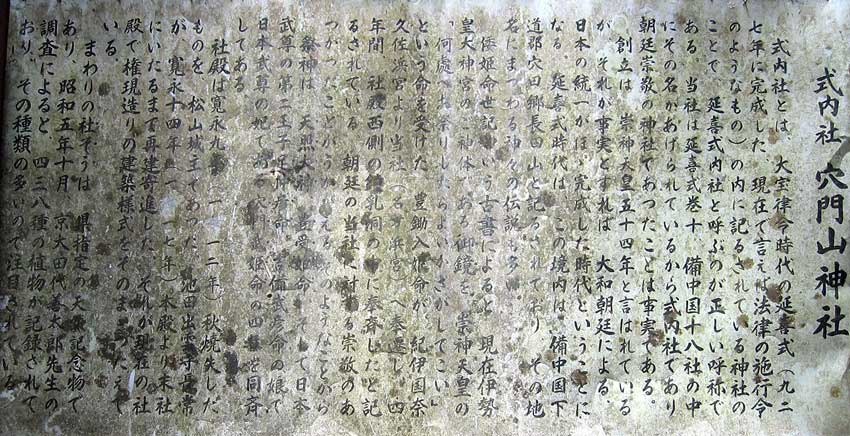 式内社 穴門山神社
式内社とは、大宝律令時代の延喜式(九二
七年に完成した、現在で言えば法律の施行令
のようなもの)の内に記るされている神社の
ことで、延喜式内社と呼ぶのが正しい呼称で
ある。当社は延喜式巻十、備中国十八社の中
にその名があげられているから式内社であり
朝廷崇敬の神社であつたことは事実である。
創立は、崇神天皇五十四年と言はれている
が、それが事実とすれば、大和朝廷による、
日本の統一がほゞ完成した時代ということに
なる。延喜式時代は、この境内は、備中国下
道郡穴田郷長田山と記るされており、その地
名にまつわる神々の伝説も多
倭姫命世記という古書によると、現在伊勢
皇大神宮のご神体である御鏡を、崇神天皇の
「何處へお祭りしたらよいかさがしてこい」
という命を受けた、豊鋤入姫命が、紀伊国奈
久佐浜宮より当社(名方浜宮)へ奉遷し、四
年間、社殿西側の鍾乳洞の中に奉斉したと記
るされている。朝廷の当社に対する崇敬のあ
つかつたことがうかがえる。このようなことから
祭神は、天照大神 倉稲魂命 そして日本
武尊の第二王子足仲彦命、吉備武彦命の娘で
日本武尊の妃である穴門武姫命の四神を同斉
してある
社殿は寛永九年 秋焼失した
ものを、松山城主であつた、池田出雲守長常
が、寛永十四年 本殿より末社
にいたるまで再建寄進した。それが現在の社
殿で権現造りの建築様式をそのままつたえて
いる
まわりの社そうは、県指定の天然記念物で
あり、昭和五年十月、京大田代善太郎先生の
調査によると、四二八種の植物が記録されて
おり、その種類の多いので注目されている。